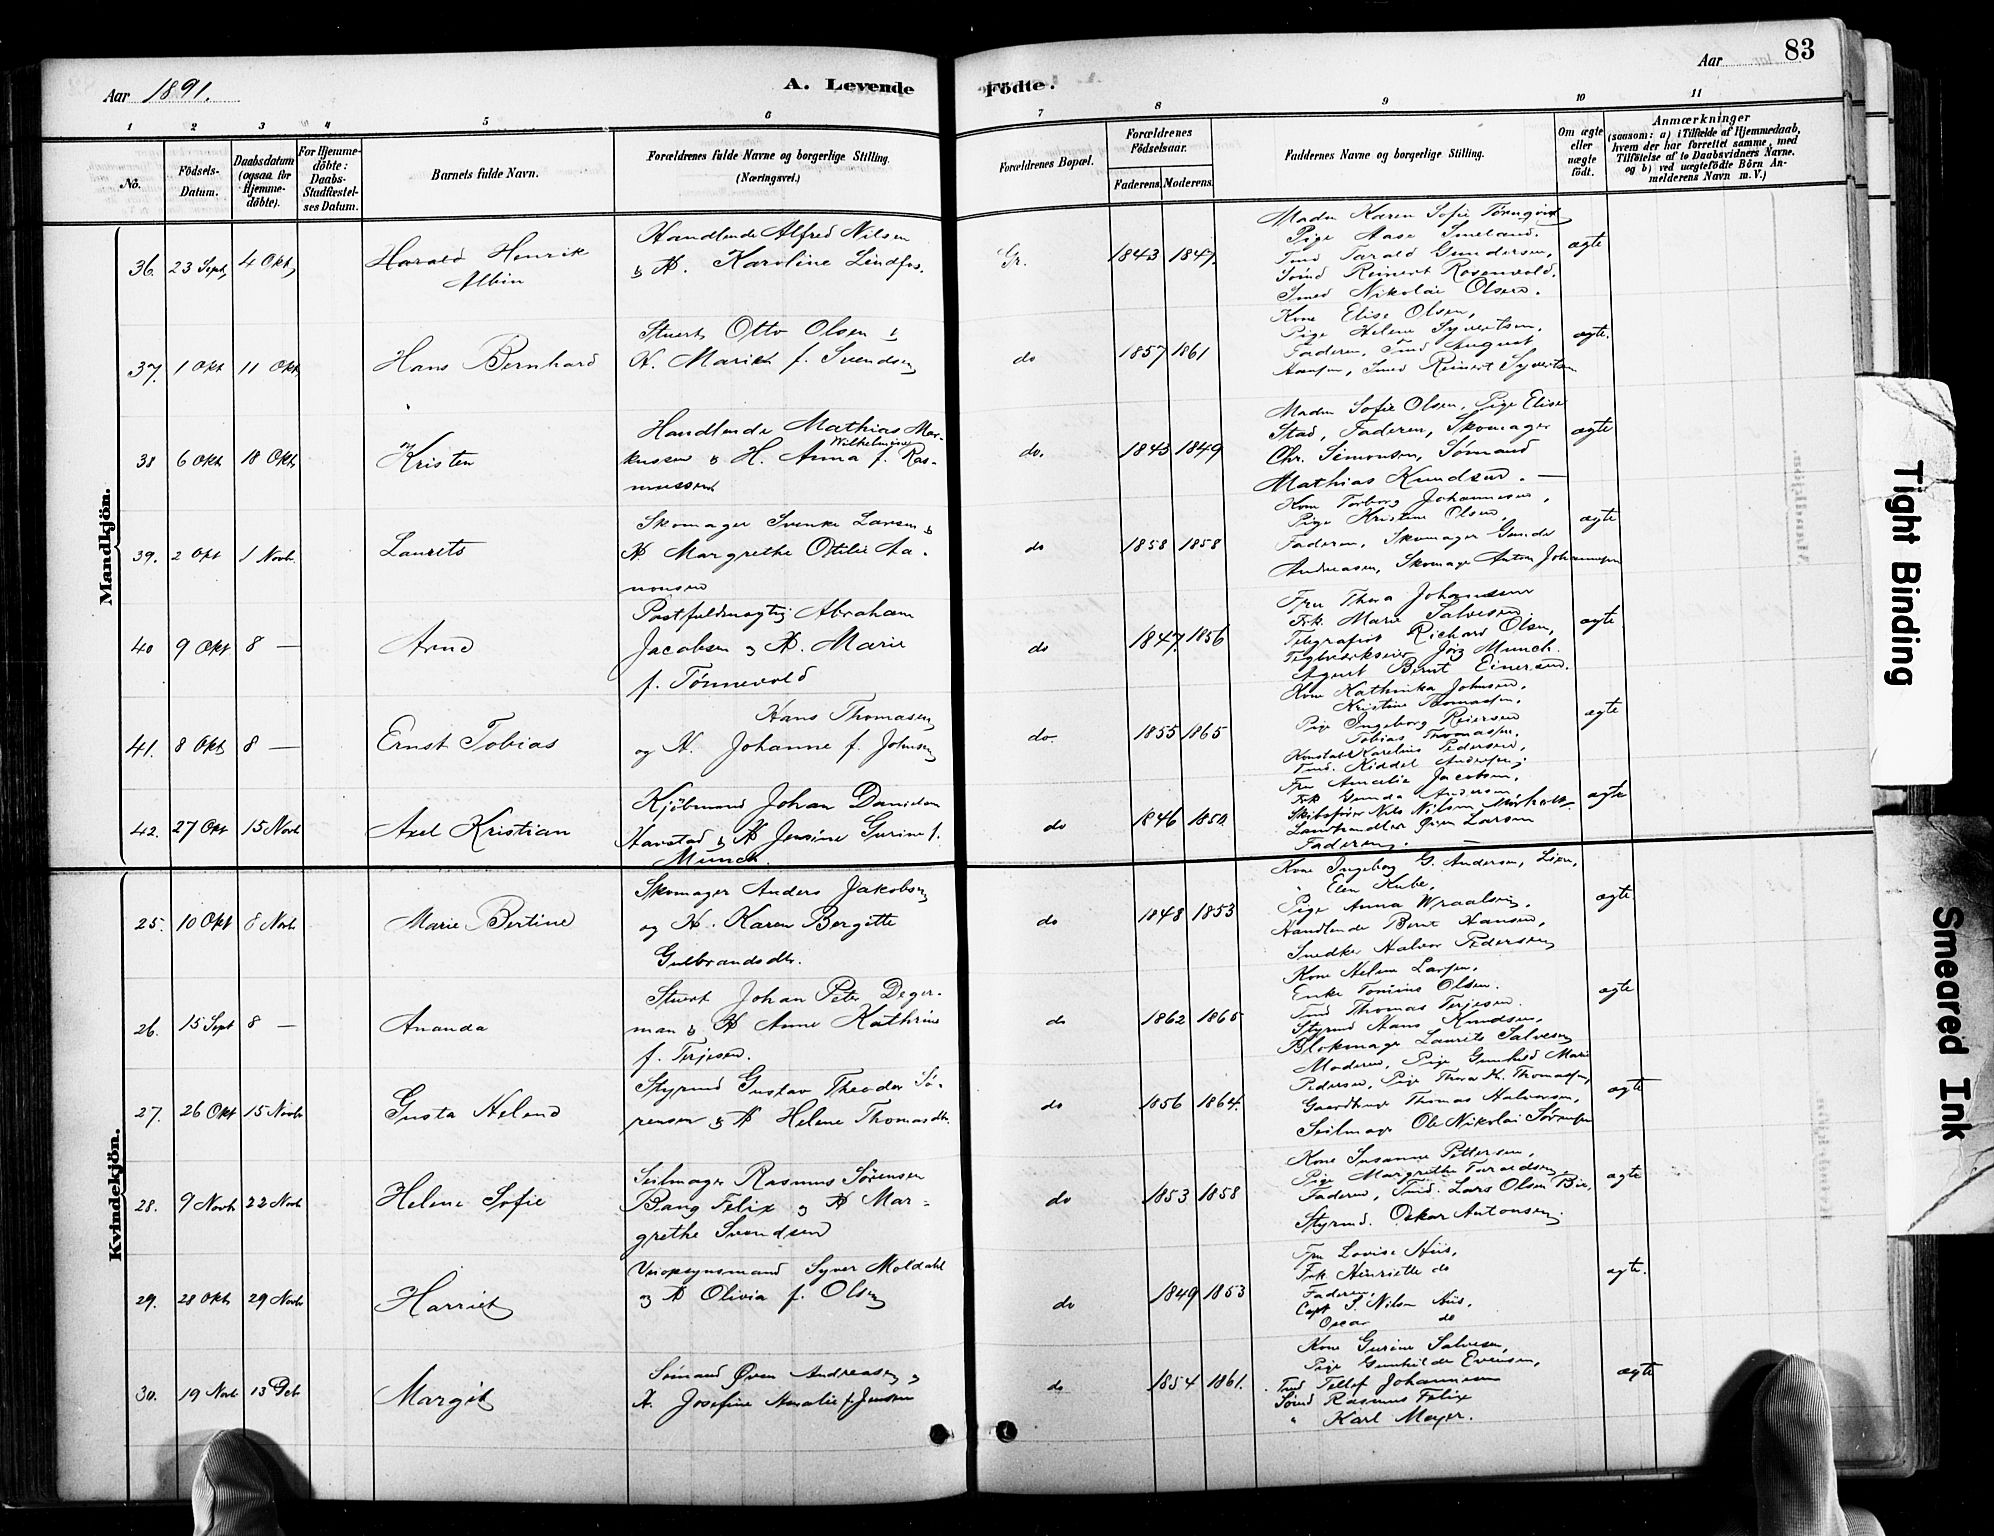 83
Aar 1891.
A. Levende Födte.
Aar
1 2 3 4 5 6 7 8 9 10 11
No.
Födsels-Datum.
Daabsdatum (ogsaa for Hjemme-döbte).
For Hjemme-döbte: Daabs-Stadfæstel-ses Datum.
Barnets fulde Navn.
Forældrenes fulde Navne og borgerlige Stilling. (Næringsvei.)
Forældrenes Bopæl.
Forældrenes Födselsaar.
Faderens. Moderens.
Faddernes Navne og borgerlige Stilling.
Om ægte eller uægte födt.
Anmærkninger (saasom: a) i Tilfælde af Hjemmedaab, hvem der har forrettet samme, med Tilföielse af to Daabsvidners Navne. og b) ved uægtefödte Börn An-melderens Navn m. V.)
Mandkjön.
36. 23 Sept 4 Okt Harald Henrik Albin
Handlende Alfred Nilsen
& H. Karoline Lindfos.
Gr. 1843 1847.
Madm Karen Sofie Törnqvist
Pige Aase Smeland.
Tmd Tarald Gundersen,
Sömd Reinert Rosenvold.
Smed Nikolai Olsen.
ægte
37. 1 Okt 11 Okt Hans Bernhard
Stuert Otto Olsen &
H. Marith f. Svendsen
do 1857 1861
Kone Elise Olsen,
Pige Helene Syvertsen,
Faderen, Tmd August
Hansen, Smed Reinert Syvertsen
ægte.
38 6 Okt 18 Okt Kristen
Handlende Mathias Mar-
kussen & H. Anna Wilhelmine f. Ras-
mussen
do. 1843 1849
Madm Sofie Olsen, Pige Elise
Stad, Faderen, Skomager
Chr. Simonsen, Sømand
Mathias Knudsen. —
ægte
39. 2 Okt 1 Novb. Laurits
Skomager Svenke Larsen &
H Margrethe Otilie Aa-
nonsen
do 1858 1858
Kone Torborg Johannesen,
Pige Kristine Olsen,
Faderen, Skomager Gunde
Andreasen, Skomager Anton Johannesen
ægte
40 9 Okt 8 — Arne
Postfuldmægtig Abraham
Jacobsen og H. Marie
f. Tønnevold
do 1847. 1856
Fru Thora Johansen
Frk. Marie Salvesen
Telegrafist Richard Olsen,
Jörg Munch.
Agent Bernt Einersen.
ægte
41. 8 Okt 8 — Ernst Tobias
Hans Thomasen
og H. Johanne f. Johnsen
do. 1855 1865
Kone Kathinka Johnsen,
Kristine Thomassen,
Pige Ingeborg Reiersen
Tobias Thomassen,
Konstabel Karelius Pedersen,
Tmd. Kiddel Andersen;
ægte
42. 27 Okt 15 Novb Axel Kristian
Kjöbmand Johan Danielsen
Havstad & H Jensine Gurine f.
Munch.
do 1846 1850.
Fru Amalie Jacobsen,
Frk Gunda Andersen
Skibsfører Nils Nilsen
Landhandler Larsen
Faderen. —
ægte
Kvindekjön.
25. 10 Okt 8 Novb Marie Bertine
Skomager Anders Jakobsen
og H. Karen Bergitte
Gulbrandsdtr.
do 1848 1853
Kone Ingeborg G. Andersen, Lien,
" Elen Kube,
Pige Anna Wraalsen,
Handlende Bernt Hansen,
Snedke Halvor Pedersen
ægte.
26. 15 Sept 8 — Ananda
Stuert Johan Peter Deger-
man & H Anne Kathrine
f. Terjesen.
do 1862 1865
Kone Helene Larsen,
Enke Tomine Olsen.
Tmd Thomas Terjesen.
Styrmd Hans Knudsen,
Blokmager Laurits Salvesen
ægte
27. 26 Okt 15 Novb Gusta Helene
Styrmd Gustav Theodor Sø-
rensen & H Helene Thomasdtr.
do 1856 1864.
Moderen, Pige Gunhild Marie
Pedersen, Pige Thora K. Thomassen,
Gaardbrugr Thomas Halvorsen,
Seilmager Ole Nikolai Sørensen
ægte
28. 9 Novb 22 Novb Helene Sofie
Seilmager Rasmus Sørensen
Bang Felix og H Mar-
grethe Svendsen
do 1853 1858
Kone Susanne Pettersen,
Pige Margrethe Taraldsen,
Faderen, Tmd. Lars Olsen Bie,
Styrmd. Oskar Antonsen.
ægte
29. 28 Okt 29 Novb Harriet
Syver Moldahl
og H Olivia f. Olsen
do 1849 1853
Fru Lovise Hiis,
Frk Henriette do
Faderen,
Capt S. Nilsen Hiis,
Oscar do
ægte.
30. 19 Novb 13 Deb Margit
Sømand Øven Andreasen &
H. Josefine Amalie f. Jensen
do 1854 1861.
Kone Gurine Salvesen,
Pige Gunhilde Evensen,
Tmd Tellef Johannesen
Sömd Rasmus Felix
" Karl Meyer.
ægte
Tight Binding
Smeared Ink